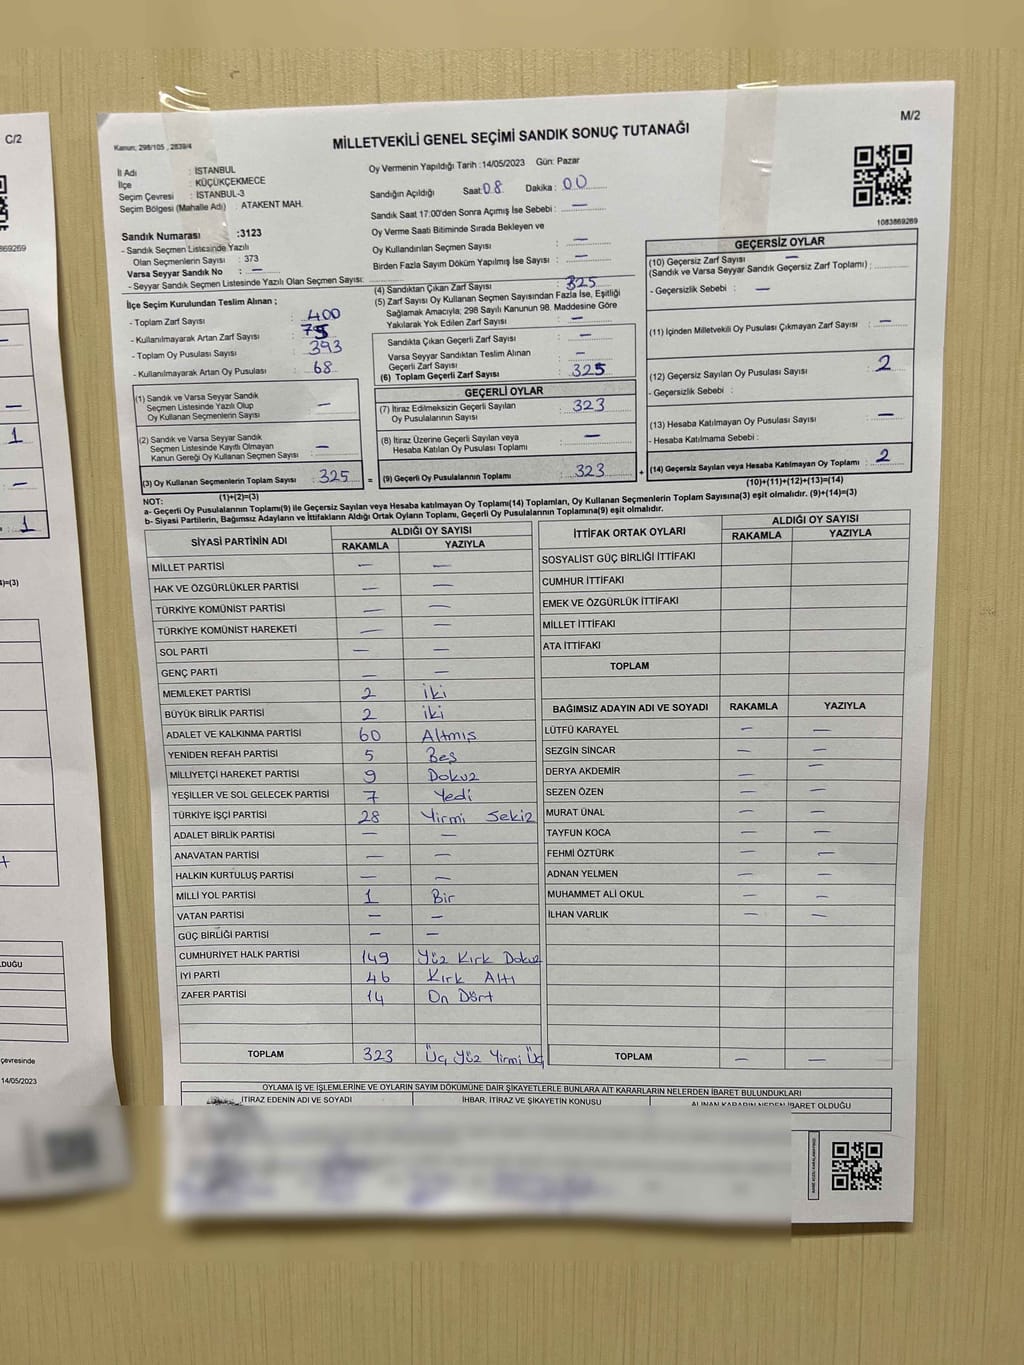 C/2
M/2
Kanun; 298/105 , 2839/4
MİLLETVEKİLİ GENEL SEÇİMİ SANDIK SONUÇ TUTANAĞI
İl Adı : İSTANBUL
İlçe : KÜÇÜKÇEKMECE
Seçim Çevresi : İSTANBUL-3
Seçim Bölgesi (Mahalle Adı) : ATAKENT MAH.
Sandık Numarası :3123
- Sandık Seçmen Listesinde Yazılı
Olan Seçmenlerin Sayısı : 373
Varsa Seyyar Sandık No : —
- Seyyar Sandık Seçmen Listesinde Yazılı Olan Seçmen Sayısı:
Oy Vermenin Yapıldığı Tarih :14/05/2023 Gün: Pazar
Sandığın Açıldığı Saat:08 Dakika: 00
Sandık Saat 17:00'den Sonra Açımış İse Sebebi : —
Oy Verme Saati Bitiminde Sırada Bekleyen ve
Oy Kullandırılan Seçmen Sayısı : —
Birden Fazla Sayım Döküm Yapılmış İse Sayısı : —
1083869269
İlçe Seçim Kurulundan Teslim Alınan ;
- Toplam Zarf Sayısı : 400
- Kullanılmayarak Artan Zarf Sayısı : 75
- Toplam Oy Pusulası Sayısı : 393
- Kullanılmayarak Artan Oy Pusulası : 68
(1) Sandık ve Varsa Seyyar Sandık
Seçmen Listesinde Yazılı Olup
Oy Kullanan Seçmenlerin Sayısı : —
(2) Sandık ve Varsa Seyyar Sandık
Seçmen Listesinde Kayıtlı Olmayan
Kanun Gereği Oy Kullanan Seçmen Sayısı : —
(3) Oy Kullanan Seçmenlerin Toplam Sayısı : 325 =
(1)+(2)=(3)
(4) Sandıktan Çıkan Zarf Sayısı : 325
(5) Zarf Sayısı Oy Kullanan Seçmen Sayısından Fazla İse, Eşitliği
Sağlamak Amacıyla; 298 Sayılı Kanunun 98. Maddesine Göre
Yakılarak Yok Edilen Zarf Sayısı : —
Sandıkta Çıkan Geçerli Zarf Sayısı : —
Varsa Seyyar Sandıktan Teslim Alınan
Geçerli Zarf Sayısı : —
(6) Toplam Geçerli Zarf Sayısı : 325
GEÇERLİ OYLAR
(7) İtiraz Edilmeksizin Geçerli Sayılan
Oy Pusulalarının Sayısı : 323
(8) İtiraz Üzerine Geçerli Sayılan veya
Hesaba Katılan Oy Pusulası Toplamı : —
(9) Geçerli Oy Pusulalarının Toplamı : 323 +
GEÇERSİZ OYLAR
(10) Geçersiz Zarf Sayısı —
(Sandık ve Varsa Seyyar Sandık Geçersiz Zarf Toplamı) :
- Geçersizlik Sebebi : —
(11) İçinden Milletvekili Oy Pusulası Çıkmayan Zarf Sayısı : —
(12) Geçersiz Sayılan Oy Pusulası Sayısı : 2
- Geçersizlik Sebebi :
(13) Hesaba Katılmayan Oy Pusulası Sayısı : —
- Hesaba Katılmama Sebebi :
(14) Geçersiz Sayılan veya Hesaba Katılmayan Oy Toplamı : 2
(10)+(11)+(12)+(13)=(14)
NOT:
a- Geçerli Oy Pusulalarının Toplamı(9) ile Geçersiz Sayılan veya Hesaba katılmayan Oy Toplamı(14) Toplamları, Oy Kullanan Seçmenlerin Toplam Sayısına(3) eşit olmalıdır. (9)+(14)=(3)
b- Siyasi Partilerin, Bağımsız Adayların ve İttifakların Aldığı Ortak Oyların Toplamı, Geçerli Oy Pusulalarının Toplamına(9) eşit olmalıdır.
SİYASİ PARTİNİN ADI ALDIĞI OY SAYISI
RAKAMLA YAZIYLA
MİLLET PARTİSİ — —
HAK VE ÖZGÜRLÜKLER PARTİSİ — —
TÜRKİYE KOMÜNİST PARTİSİ — —
TÜRKİYE KOMÜNİST HAREKETİ — —
SOL PARTİ — —
GENÇ PARTİ — —
MEMLEKET PARTİSİ 2 iki
BÜYÜK BİRLİK PARTİSİ 2 iki
ADALET VE KALKINMA PARTİSİ 60 Altmış
YENİDEN REFAH PARTİSİ 5 Beş
MİLLİYETÇİ HAREKET PARTİSİ 9 Dokuz
YEŞİLLER VE SOL GELECEK PARTİSİ 7 Yedi
TÜRKİYE İŞÇİ PARTİSİ 28 Yirmi Sekiz
ADALET BİRLİK PARTİSİ — —
ANAVATAN PARTİSİ — —
HALKIN KURTULUŞ PARTİSİ — —
MİLLİ YOL PARTİSİ 1 Bir
VATAN PARTİSİ — —
GÜÇ BİRLİĞİ PARTİSİ — —
CUMHURİYET HALK PARTİSİ 149 Yüz Kırk Dokuz
İYİ PARTİ 46 Kırk Altı
ZAFER PARTİSİ 14 On Dört
TOPLAM 323 Üç Yüz Yirmi Üç
İTTİFAK ORTAK OYLARI ALDIĞI OY SAYISI
RAKAMLA YAZIYLA
SOSYALİST GÜÇ BİRLİĞİ İTTİFAKI
CUMHUR İTTİFAKI
EMEK VE ÖZGÜRLÜK İTTİFAKI
MİLLET İTTİFAKI
ATA İTTİFAKI
TOPLAM
BAĞIMSIZ ADAYIN ADI VE SOYADI RAKAMLA YAZIYLA
LÜTFÜ KARAYEL — —
SEZGİN SİNCAR — —
DERYA AKDEMİR — —
SEZEN ÖZEN — —
MURAT ÜNAL — —
TAYFUN KOCA — —
FEHMİ ÖZTÜRK — —
ADNAN YELMEN — —
MUHAMMET ALİ OKUL — —
İLHAN VARLIK — —
TOPLAM — —
OYLAMA İŞ VE İŞLEMLERİNE VE OYLARIN SAYIM DÖKÜMÜNE DAİR ŞİKAYETLERLE BUNLARA AİT KARARLARIN NELERDEN İBARET BULUNDUKLARI
İTİRAZ EDENİN ADI VE SOYADI İHBAR, İTİRAZ VE ŞİKAYETİN KONUSU ALINAN KARARIN NEDEN İBARET OLDUĞU
869269
1
1
)=(3)
LDUĞU
çevresinde
14/05/2023